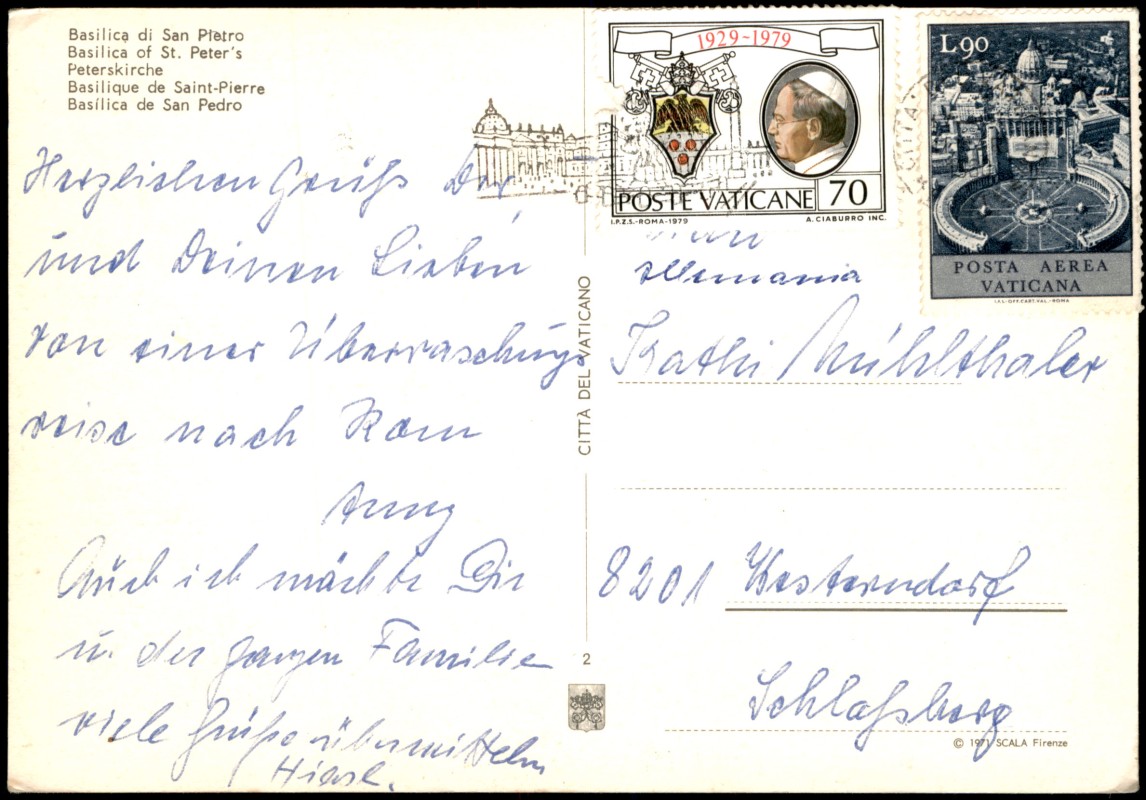 Basilica di San Pietro
Basilica of St. Peter's
Peterskirche
Basilique de Saint-Pierre
Basílica de San Pedro
Herzlichen Grüß Dir
und Deinen Lieben
von einer Überraschungs
reise nach Rom
Anny
Auch ich möchte Dir
u. der ganzen Familie
viele Grüße übermitteln
Hiasl.
CITTÀ DEL VATICANO
2
1929-1979
POSTE VATICANE 70
I.P.Z.S.-ROMA-1979 A. CIABURRO INC.
L.90
POSTA AEREA
VATICANA
I.F.L-OFF.CART.VAL.-ROMA
Allemania
Kathi Mühlthaler
8201 Westerndorf
Schloßberg
© 1971 SCALA Firenze